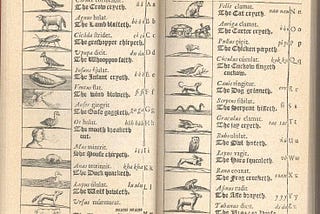 The Crow cryeth.
Agnus balat. B b
The Lamb blaiteth.
Cicàda stridet. C c
The grasshopper chirpeth.
Upupa dicit du du D d
The Whooppoo saith
Infans èjulat. E e
The Infant cryeth.
Ventus flat. fi fi F f
The wind bloweth.
Anser gingrit. ga ga G g
The Goose gaggleth.
Os halat. H h
The mouth breatheth
out.
Mus mintrit. I i
The Mouse chirpeth.
kha kha K k
The Duck quaketh.
Lupus ululat. L l
The Wolf howleth.
Ursus murmurat.
Felis clamat. nau nau N n
The Cat cryeth.
Auriga clamat. O o
The Carter cryeth.
Pullus pipit. P p
The Chicken pippeth.
Cuculus cuculat. Q q
The Cuckow singeth
cuckow.
Canis ringitur. R r
The Dog grinneth.
Serpens sibilat. S s
The Serpent hisseth.
Graculus clamat. T t
The Jay cryeth.
Bubo ululat.
The Owl hooteth.
Lepus vagit. W w
The Hare squeaketh.
Rana coaxat. X x
The Frog croaketh.
Asinus rudit. Y y
The Asse brayeth.
Tabanus dicit. Z z